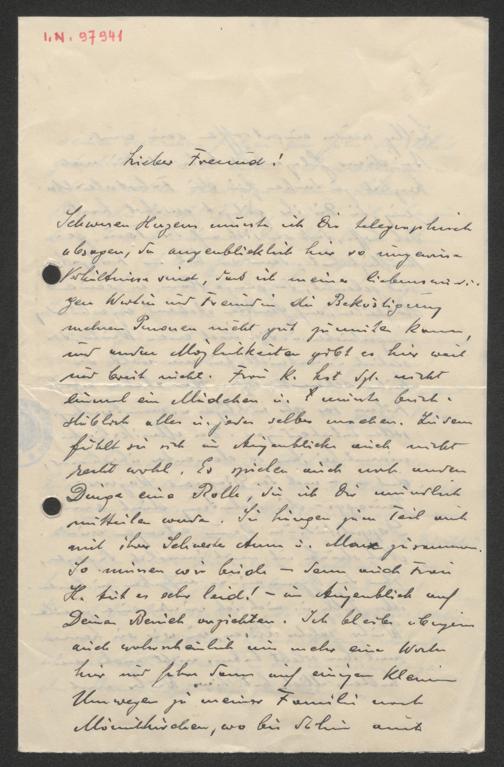 I.N. 97941
Lieber Freund!
Schweren Herzens musste ich Dir telegraphisch
absagen, da augenblicklich hier so ungewisse
Verhältnisse sind, dass ich meiner liebenswürdi-
gen Wirtin und Freundin die Beköstigung
mehrer Personen nicht gut zumuten kann,
und andere Möglichkeiten gibt es hier weit
und breit nicht. Frau K. hat dzt. nicht
einmal ein Mädchen u. musste buch-
stäblich alles u. jedes selber machen. Zudem
fühlt sie sich im Augenblicke auch nicht
recht wohl. Es spielen auch noch andere
Dinge eine Rolle, die ich Dir mündlich
mitteilen werde. Sie hängen zum Teil auch
mit ihrer Schwester Anna u. Max zusammen.
So müssen wir beide – denn auch Frau
K. tut es sehr leid! – im Augenblick auf
Deinen Besuch verzichten. Ich bleibe übrigens
auch wahrscheinlich nur mehr eine Woche
hier und fahre dann auf einigen kleinen
Umwegen zu meiner Familie nach
Mönichkirchen, wo bis dahin auch